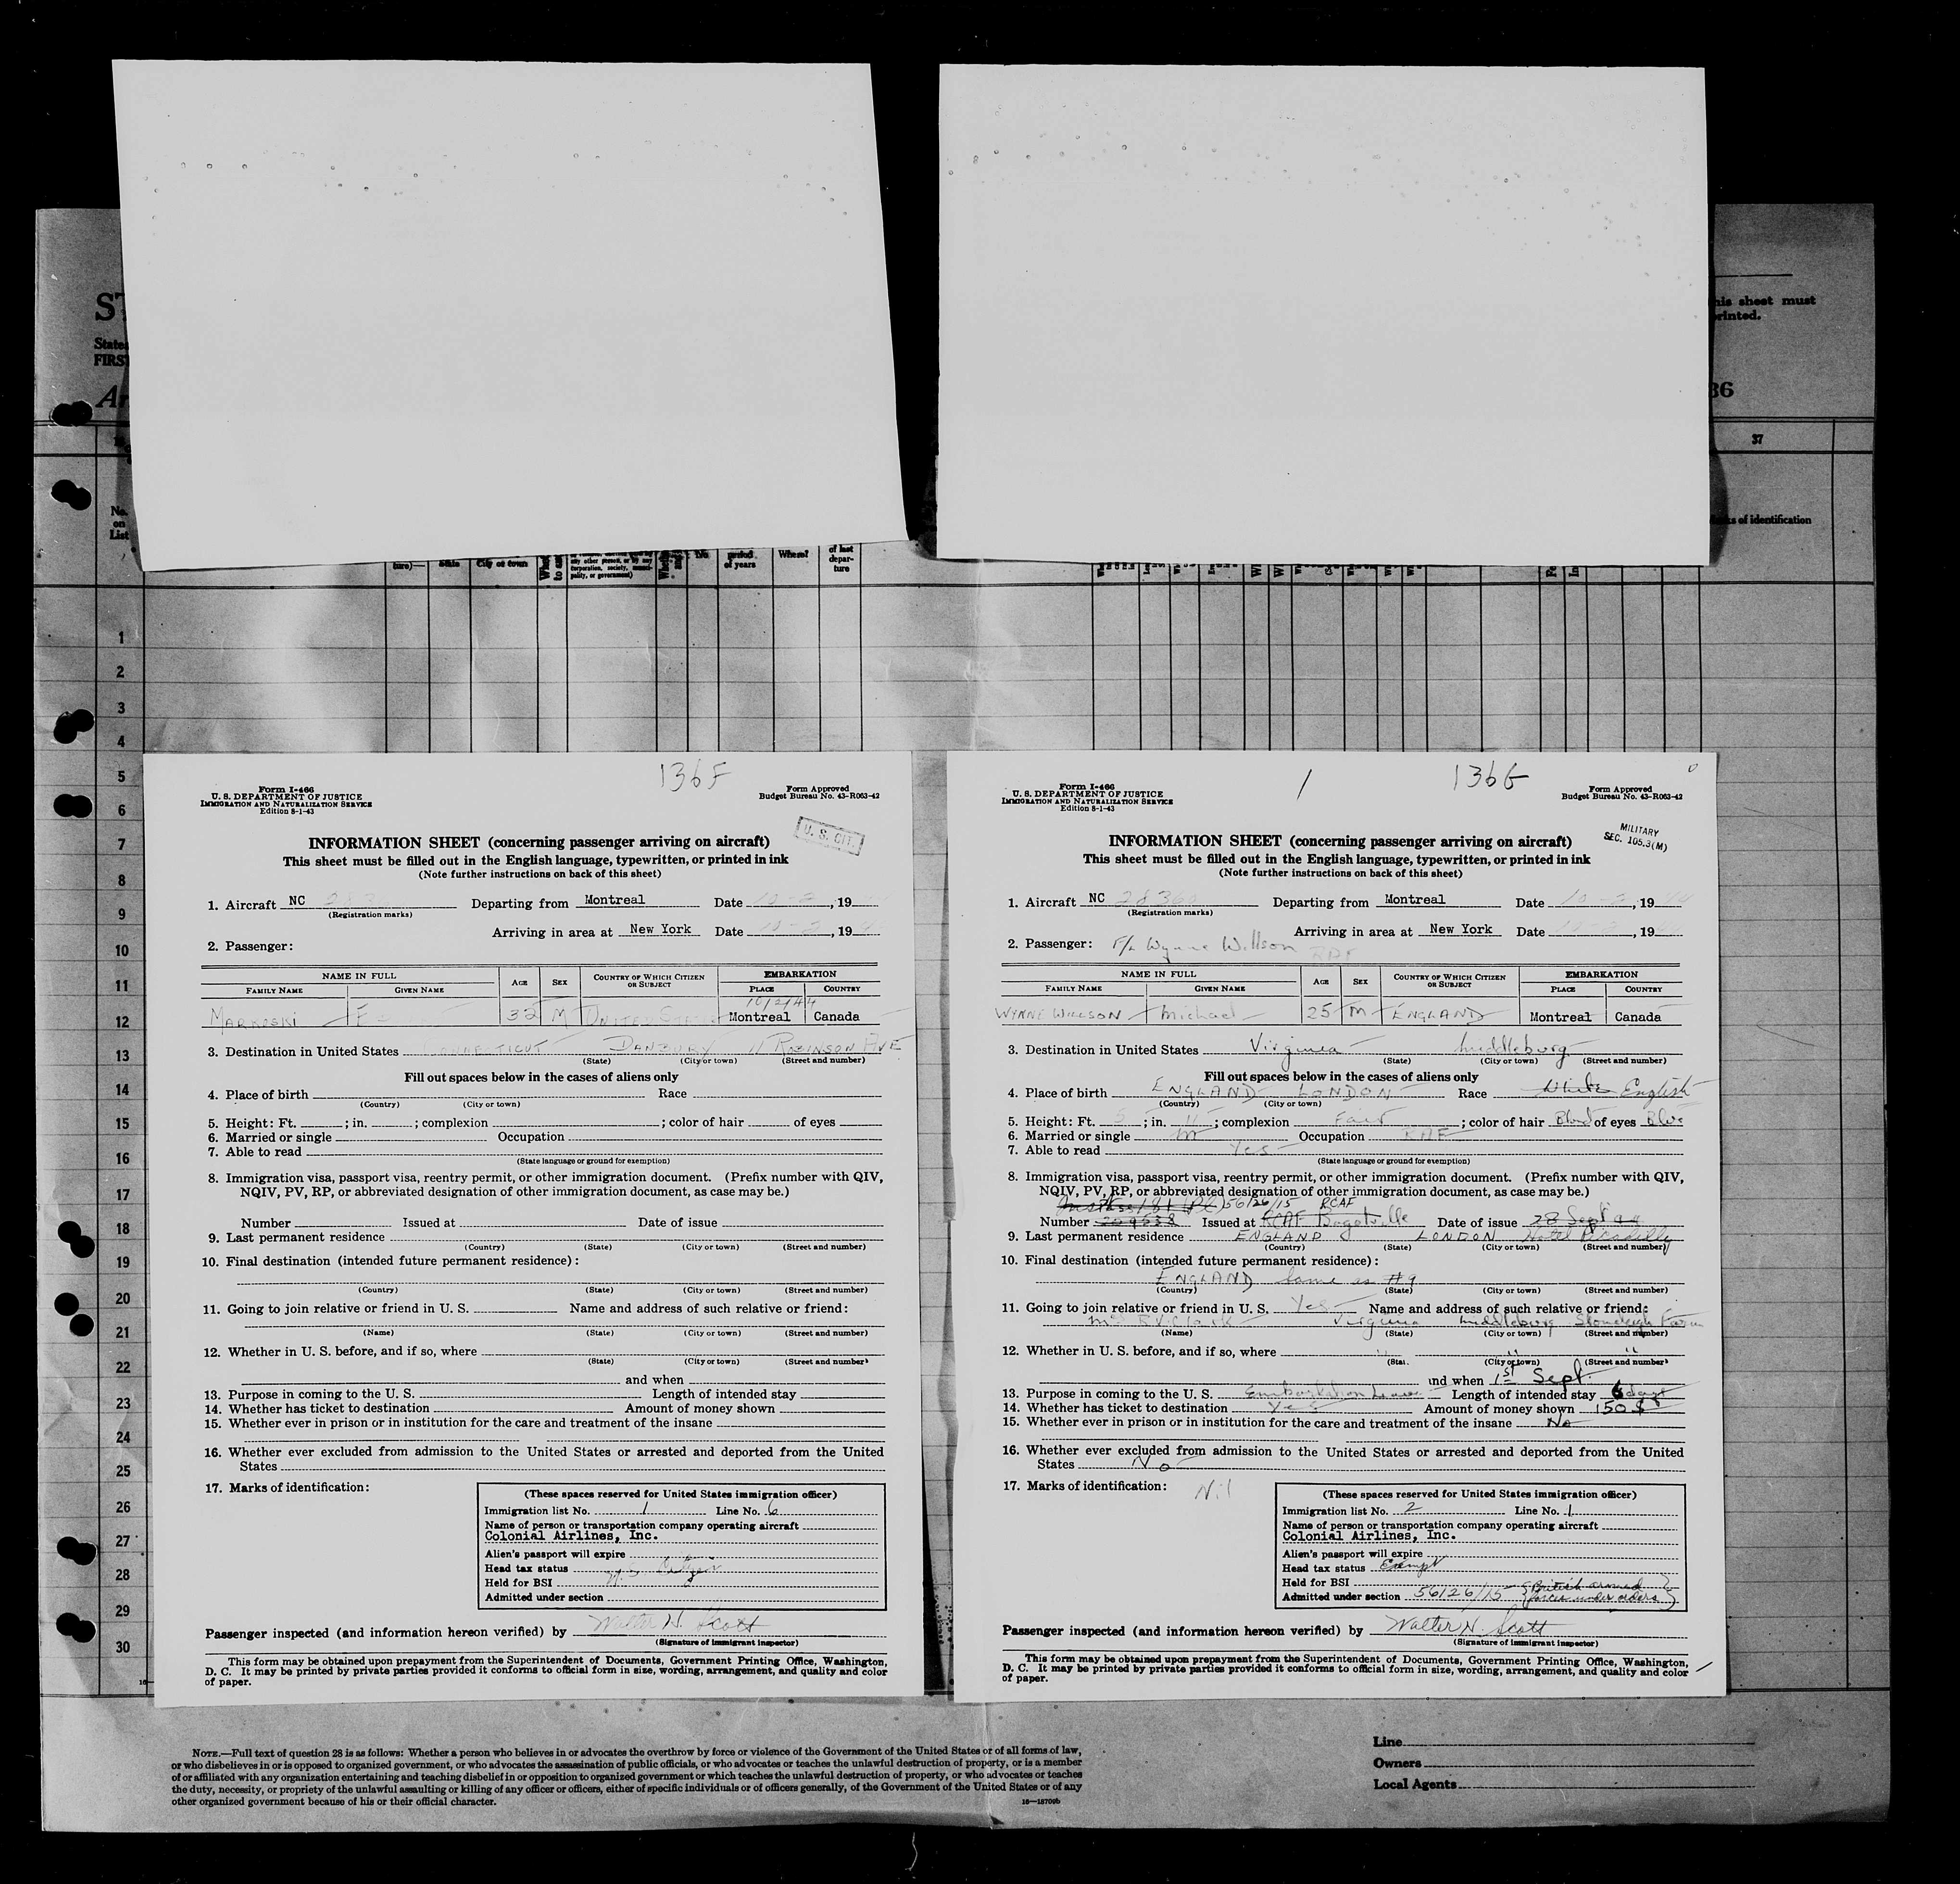 his sheet must
rinted.
State
FIRST
36
37
No.
on
List
s of identification
ture)—
State
City or town
any other person, or by any
corporation, society, munici-
pality, or government)
period
of years
Where?
of last
depar-
ture
1
2
3
4
5
6
7
8
9
10
11
12
13
14
15
16
17
18
19
20
21
22
23
24
25
26
27
28
29
30
136F
Form I-466
U. S. DEPARTMENT OF JUSTICE
IMMIGRATION AND NATURALIZATION SERVICE
Edition 8-1-43
Form Approved
Budget Bureau No. 43-R063-42
U. S. CIT.
INFORMATION SHEET (concerning passenger arriving on aircraft)
This sheet must be filled out in the English language, typewritten, or printed in ink
(Note further instructions on back of this sheet)
1. Aircraft NC Departing from Montreal Date 10-2, 19
(Registration marks)
Arriving in area at New York Date 10-2, 19
2. Passenger:
NAME IN FULL AGE SEX COUNTRY OF WHICH CITIZEN OR SUBJECT EMBARKATION
FAMILY NAME GIVEN NAME PLACE COUNTRY
10/2/44
MARKOSKI 32 M UNITED STATES Montreal Canada
3. Destination in United States CONNECTICUT DANBURY 11 ROBINSON AVE
(State) (City or town) (Street and number)
Fill out spaces below in the cases of aliens only
4. Place of birth Race
(Country) (City or town)
5. Height: Ft. ; in. ; complexion ; color of hair of eyes
6. Married or single Occupation
7. Able to read
(State language or ground for exemption)
8. Immigration visa, passport visa, reentry permit, or other immigration document. (Prefix number with QIV,
NQIV, PV, RP, or abbreviated designation of other immigration document, as case may be.)
Number Issued at Date of issue
9. Last permanent residence
(Country) (State) (City or town) (Street and number)
10. Final destination (intended future permanent residence):
(Country) (State) (City or town) (Street and number)
11. Going to join relative or friend in U. S. Name and address of such relative or friend:
(Name) (State) (City or town) (Street and number)
12. Whether in U. S. before, and if so, where
(State) (City or town) (Street and number)
and when
13. Purpose in coming to the U. S. Length of intended stay
14. Whether has ticket to destination Amount of money shown
15. Whether ever in prison or in institution for the care and treatment of the insane
16. Whether ever excluded from admission to the United States or arrested and deported from the United
States
17. Marks of identification:
(These spaces reserved for United States immigration officer)
Immigration list No. 1 Line No. 6
Name of person or transportation company operating aircraft
Colonial Airlines, Inc.
Alien's passport will expire
Head tax status U.S. Citizen
Held for BSI
Admitted under section
Passenger inspected (and information hereon verified) by Walter N. Scott
(Signature of immigrant inspector)
This form may be obtained upon prepayment from the Superintendent of Documents, Government Printing Office, Washington,
D. C. It may be printed by private parties provided it conforms to official form in size, wording, arrangement, and quality and color
of paper.
/ 136G
Form I-466
U. S. DEPARTMENT OF JUSTICE
IMMIGRATION AND NATURALIZATION SERVICE
Edition 8-1-43
Form Approved
Budget Bureau No. 43-R063-42
MILITARY
SEC. 105.3(M)
INFORMATION SHEET (concerning passenger arriving on aircraft)
This sheet must be filled out in the English language, typewritten, or printed in ink
(Note further instructions on back of this sheet)
1. Aircraft NC 28360 Departing from Montreal Date 10-2, 1944
(Registration marks)
Arriving in area at New York Date 10-2, 19
2. Passenger: F/L Wynne Willson RAF
NAME IN FULL AGE SEX COUNTRY OF WHICH CITIZEN OR SUBJECT EMBARKATION
FAMILY NAME GIVEN NAME PLACE COUNTRY
WYNNE WILLSON Michael 25 M ENGLAND Montreal Canada
3. Destination in United States Virginia Middleburg
(State) (City or town) (Street and number)
Fill out spaces below in the cases of aliens only
4. Place of birth ENGLAND LONDON Race White English
(Country) (City or town)
5. Height: Ft. 5 ; in. 11 ; complexion Fair ; color of hair Blond of eyes Blue
6. Married or single M Occupation RAF
7. Able to read Yes
(State language or ground for exemption)
8. Immigration visa, passport visa, reentry permit, or other immigration document. (Prefix number with QIV,
NQIV, PV, RP, or abbreviated designation of other immigration document, as case may be.)
56/26/15 RCAF
Number Issued at RCAF Bagotville Date of issue 28 Sept 44
9. Last permanent residence ENGLAND LONDON Hotel Picadilly
(Country) (State) (City or town) (Street and number)
10. Final destination (intended future permanent residence):
ENGLAND Same as #9
(Country) (State) (City or town) (Street and number)
11. Going to join relative or friend in U. S. Yes Name and address of such relative or friend:
Mrs R.V. Clark Virginia Middleburg Stoneleigh Farm
(Name) (State) (City or town) (Street and number)
12. Whether in U. S. before, and if so, where " " "
(State) (City or town) (Street and number)
and when 1st Sept.
13. Purpose in coming to the U. S. Embarkation Leave Length of intended stay 6 days
14. Whether has ticket to destination Yes Amount of money shown 150 $
15. Whether ever in prison or in institution for the care and treatment of the insane No
16. Whether ever excluded from admission to the United States or arrested and deported from the United
States No
17. Marks of identification: Nil
(These spaces reserved for United States immigration officer)
Immigration list No. 2 Line No. 1
Name of person or transportation company operating aircraft
Colonial Airlines, Inc.
Alien's passport will expire
Head tax status Exempt
Held for BSI
Admitted under section 56/26/15 (British armed forces under orders)
Passenger inspected (and information hereon verified) by Walter N. Scott
(Signature of immigrant inspector)
This form may be obtained upon prepayment from the Superintendent of Documents, Government Printing Office, Washington,
D. C. It may be printed by private parties provided it conforms to official form in size, wording, arrangement, and quality and color
of paper.
NOTE.—Full text of question 28 is as follows: Whether a person who believes in or advocates the overthrow by force or violence of the Government of the United States or of all forms of law,
or who disbelieves in or is opposed to organized government, or who advocates the assassination of public officials, or who advocates or teaches the unlawful destruction of property, or is a member
of or affiliated with any organization entertaining and teaching disbelief in or opposition to organized government or which teaches the unlawful destruction of property, or who advocates or teaches
the duty, necessity, or propriety of the unlawful assaulting or killing of any officer or officers, either of specific individuals or of officers generally, of the Government of the United States or of any
other organized government because of his or their official character.
16—18709b
Line
Owners
Local Agents